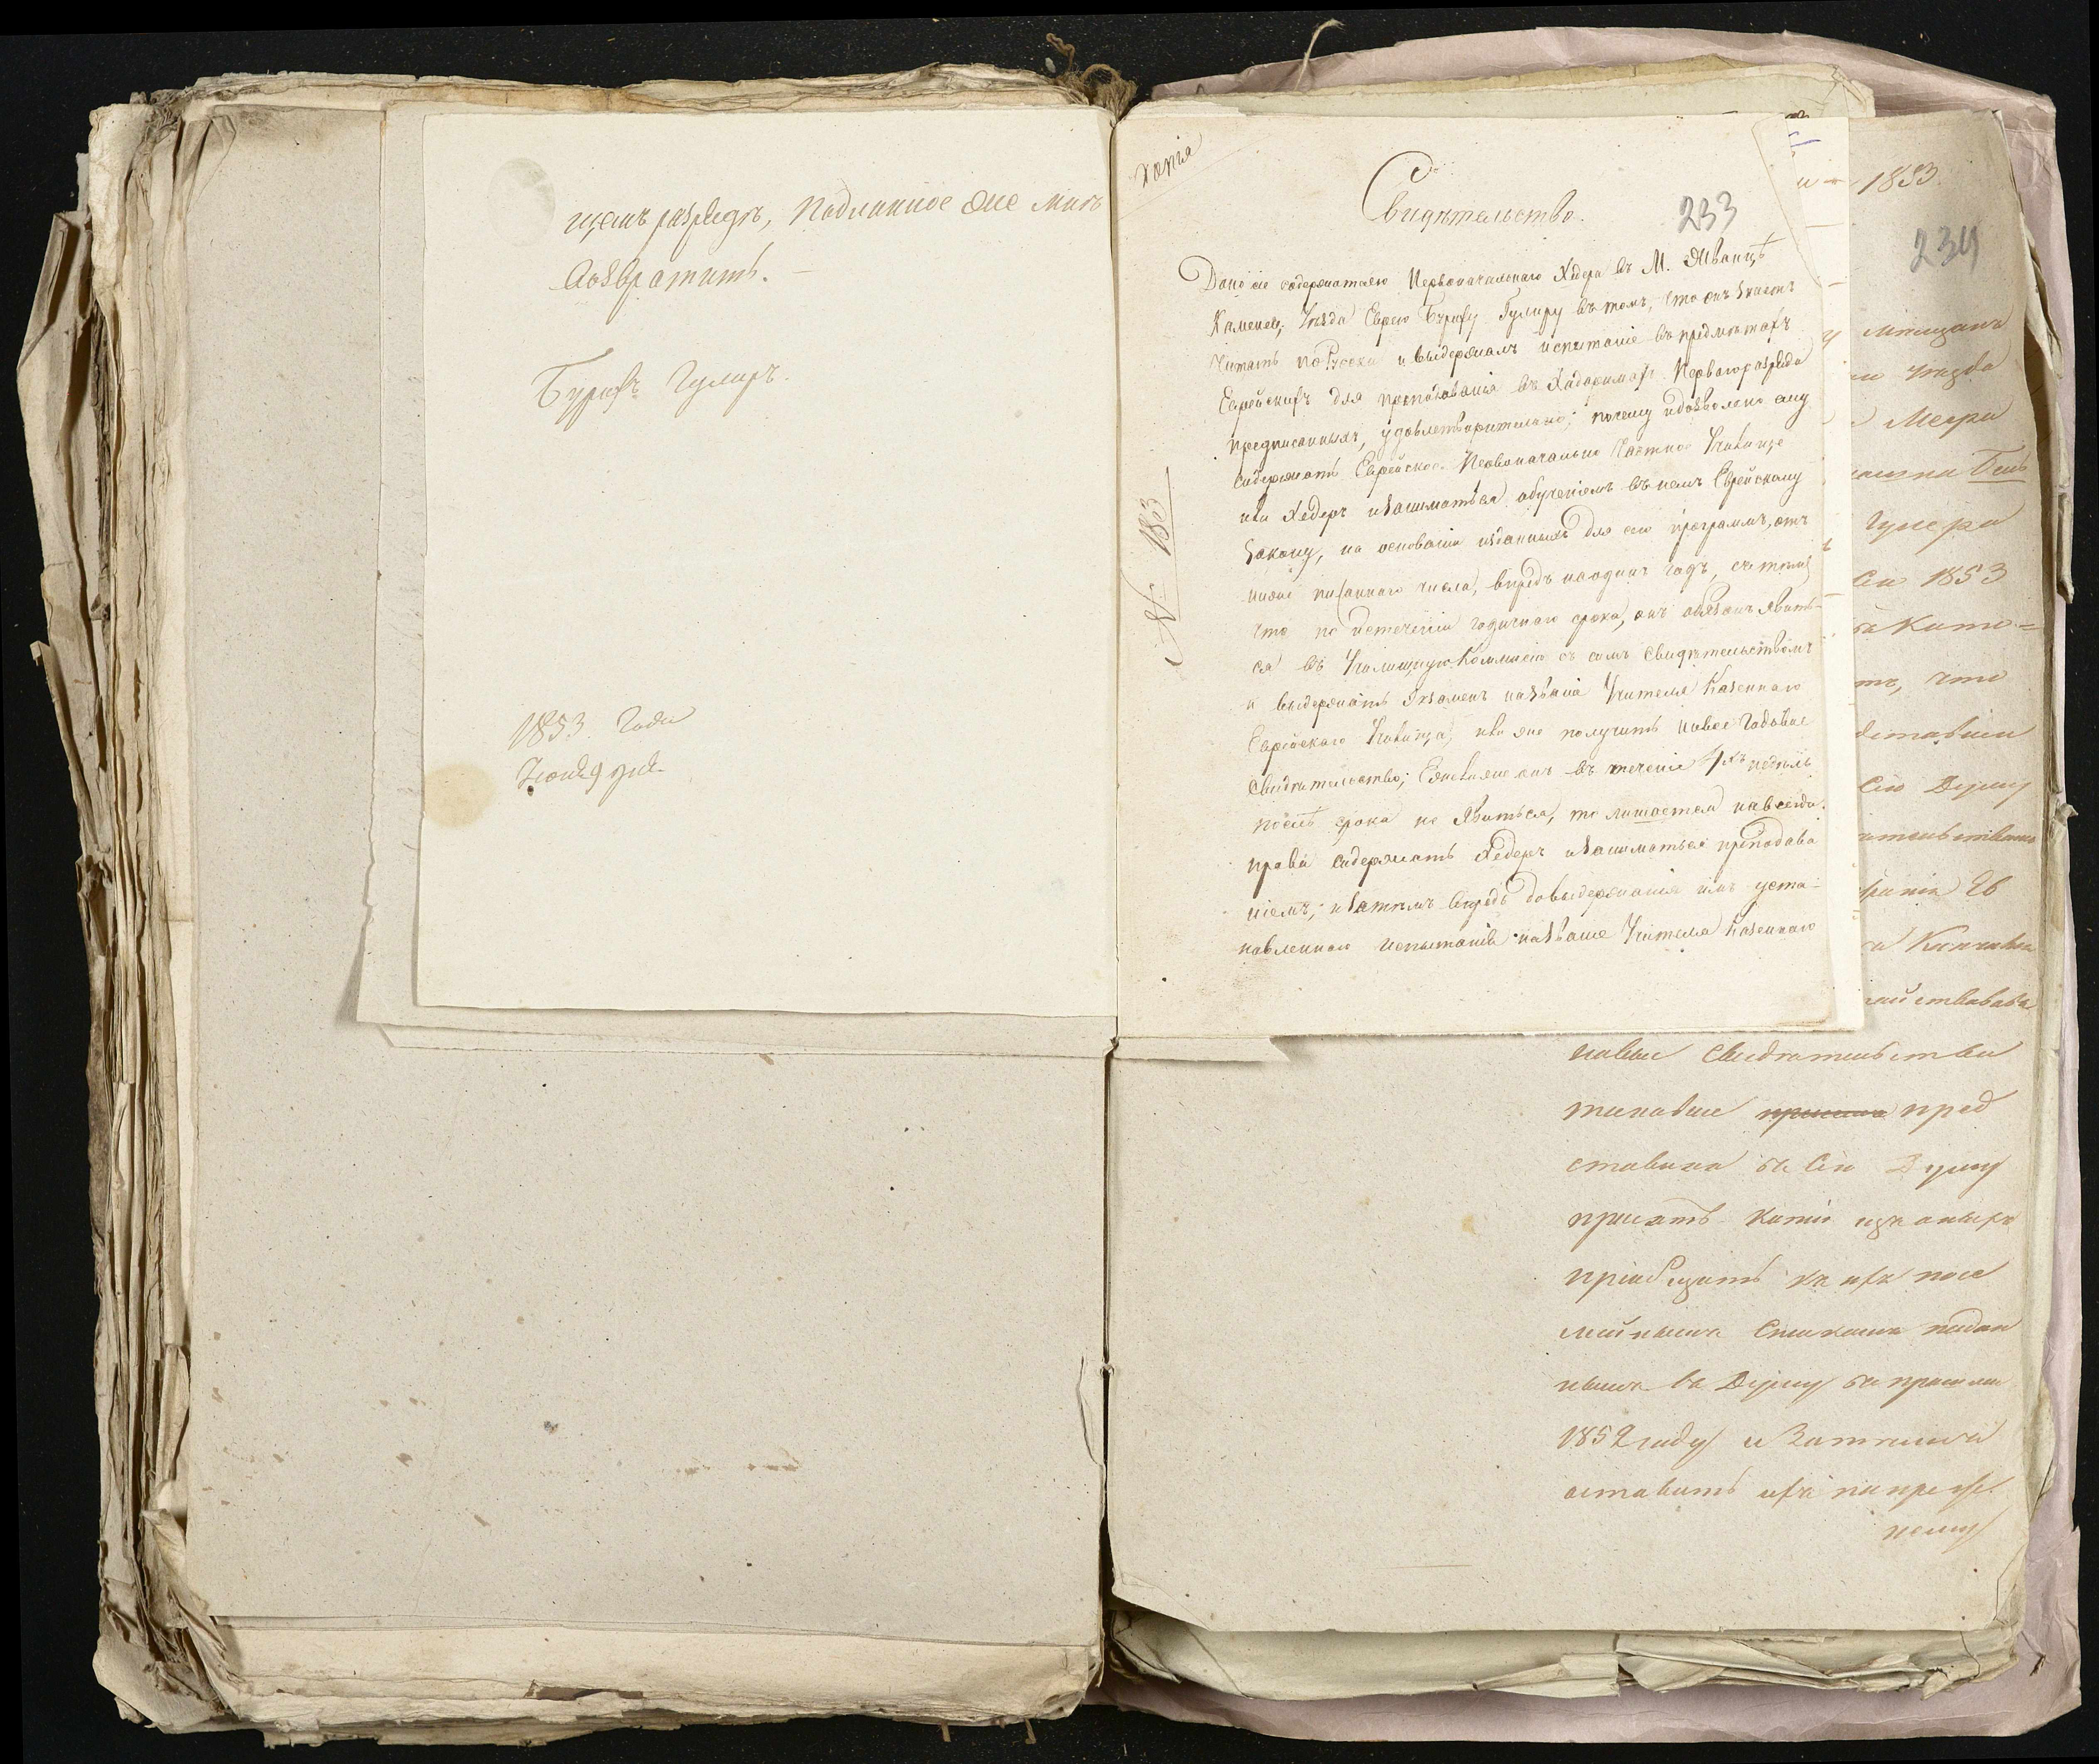 щемъ разрядѣ, подлинное оне мнѣ
возвратить. —
Бурихъ Гулиръ.
1853 Года
Іюня 9 дня
Копія
Свидѣтельство.
233
№ 183
Дано сіе содержателю Первоначальнаго Хедера въ М. Жванцѣ
Каменец. Уѣзда Еврею Буриху Гулиру въ томъ, что онъ знаетъ
читать по Русски и выдержалъ испытаніе въ предмѣтахъ
Еврейскихъ для преподаванія въ Хадаримахъ Перваго разряда
предписанныхъ, удовлетворительно; почему и дозволено ему
содержать Еврейское Первоначально Частное Училище
или Хедеръ и заниматься обученіемъ въ немъ Еврейскому
закону, на основаніи изданныхъ для сего программъ, отъ
ниже писаннаго числа, впредь на одинъ годъ, съ тѣмъ
что по истеченіи годичнаго срока, онъ обязанъ явить-
ся въ Училищную Коммисію съ симъ Свидѣтельствомъ
и выдержать Экзаменъ на званіе Учителя Казеннаго
Еврейскаго Училища, или же получить новое годовое
Свидѣтельство; Если же онъ въ теченіе 4хъ недѣль
послѣ срока не явиться, то лишается навсегда
права содержать Хедеръ и заниматься преподава
ніемъ, и затѣмъ впредь до выдержанія имъ уста-
новленнаго испытанія на званіе Учителя Казеннаго
1853
234
мѣщанъ
уѣзда
Меера
Гулера
Сен 1853
что
Сію Думу
26
новые свидѣтельства
таковые пред
ставила въ Сію Думу
принять копіи изъ оныхъ
пріобщить къ ихъ посе
мейнымъ Спискамъ подан
нымъ въ Думу въ прошлом
1852 году и Затѣмъ
оставить ихъ по преж
нему